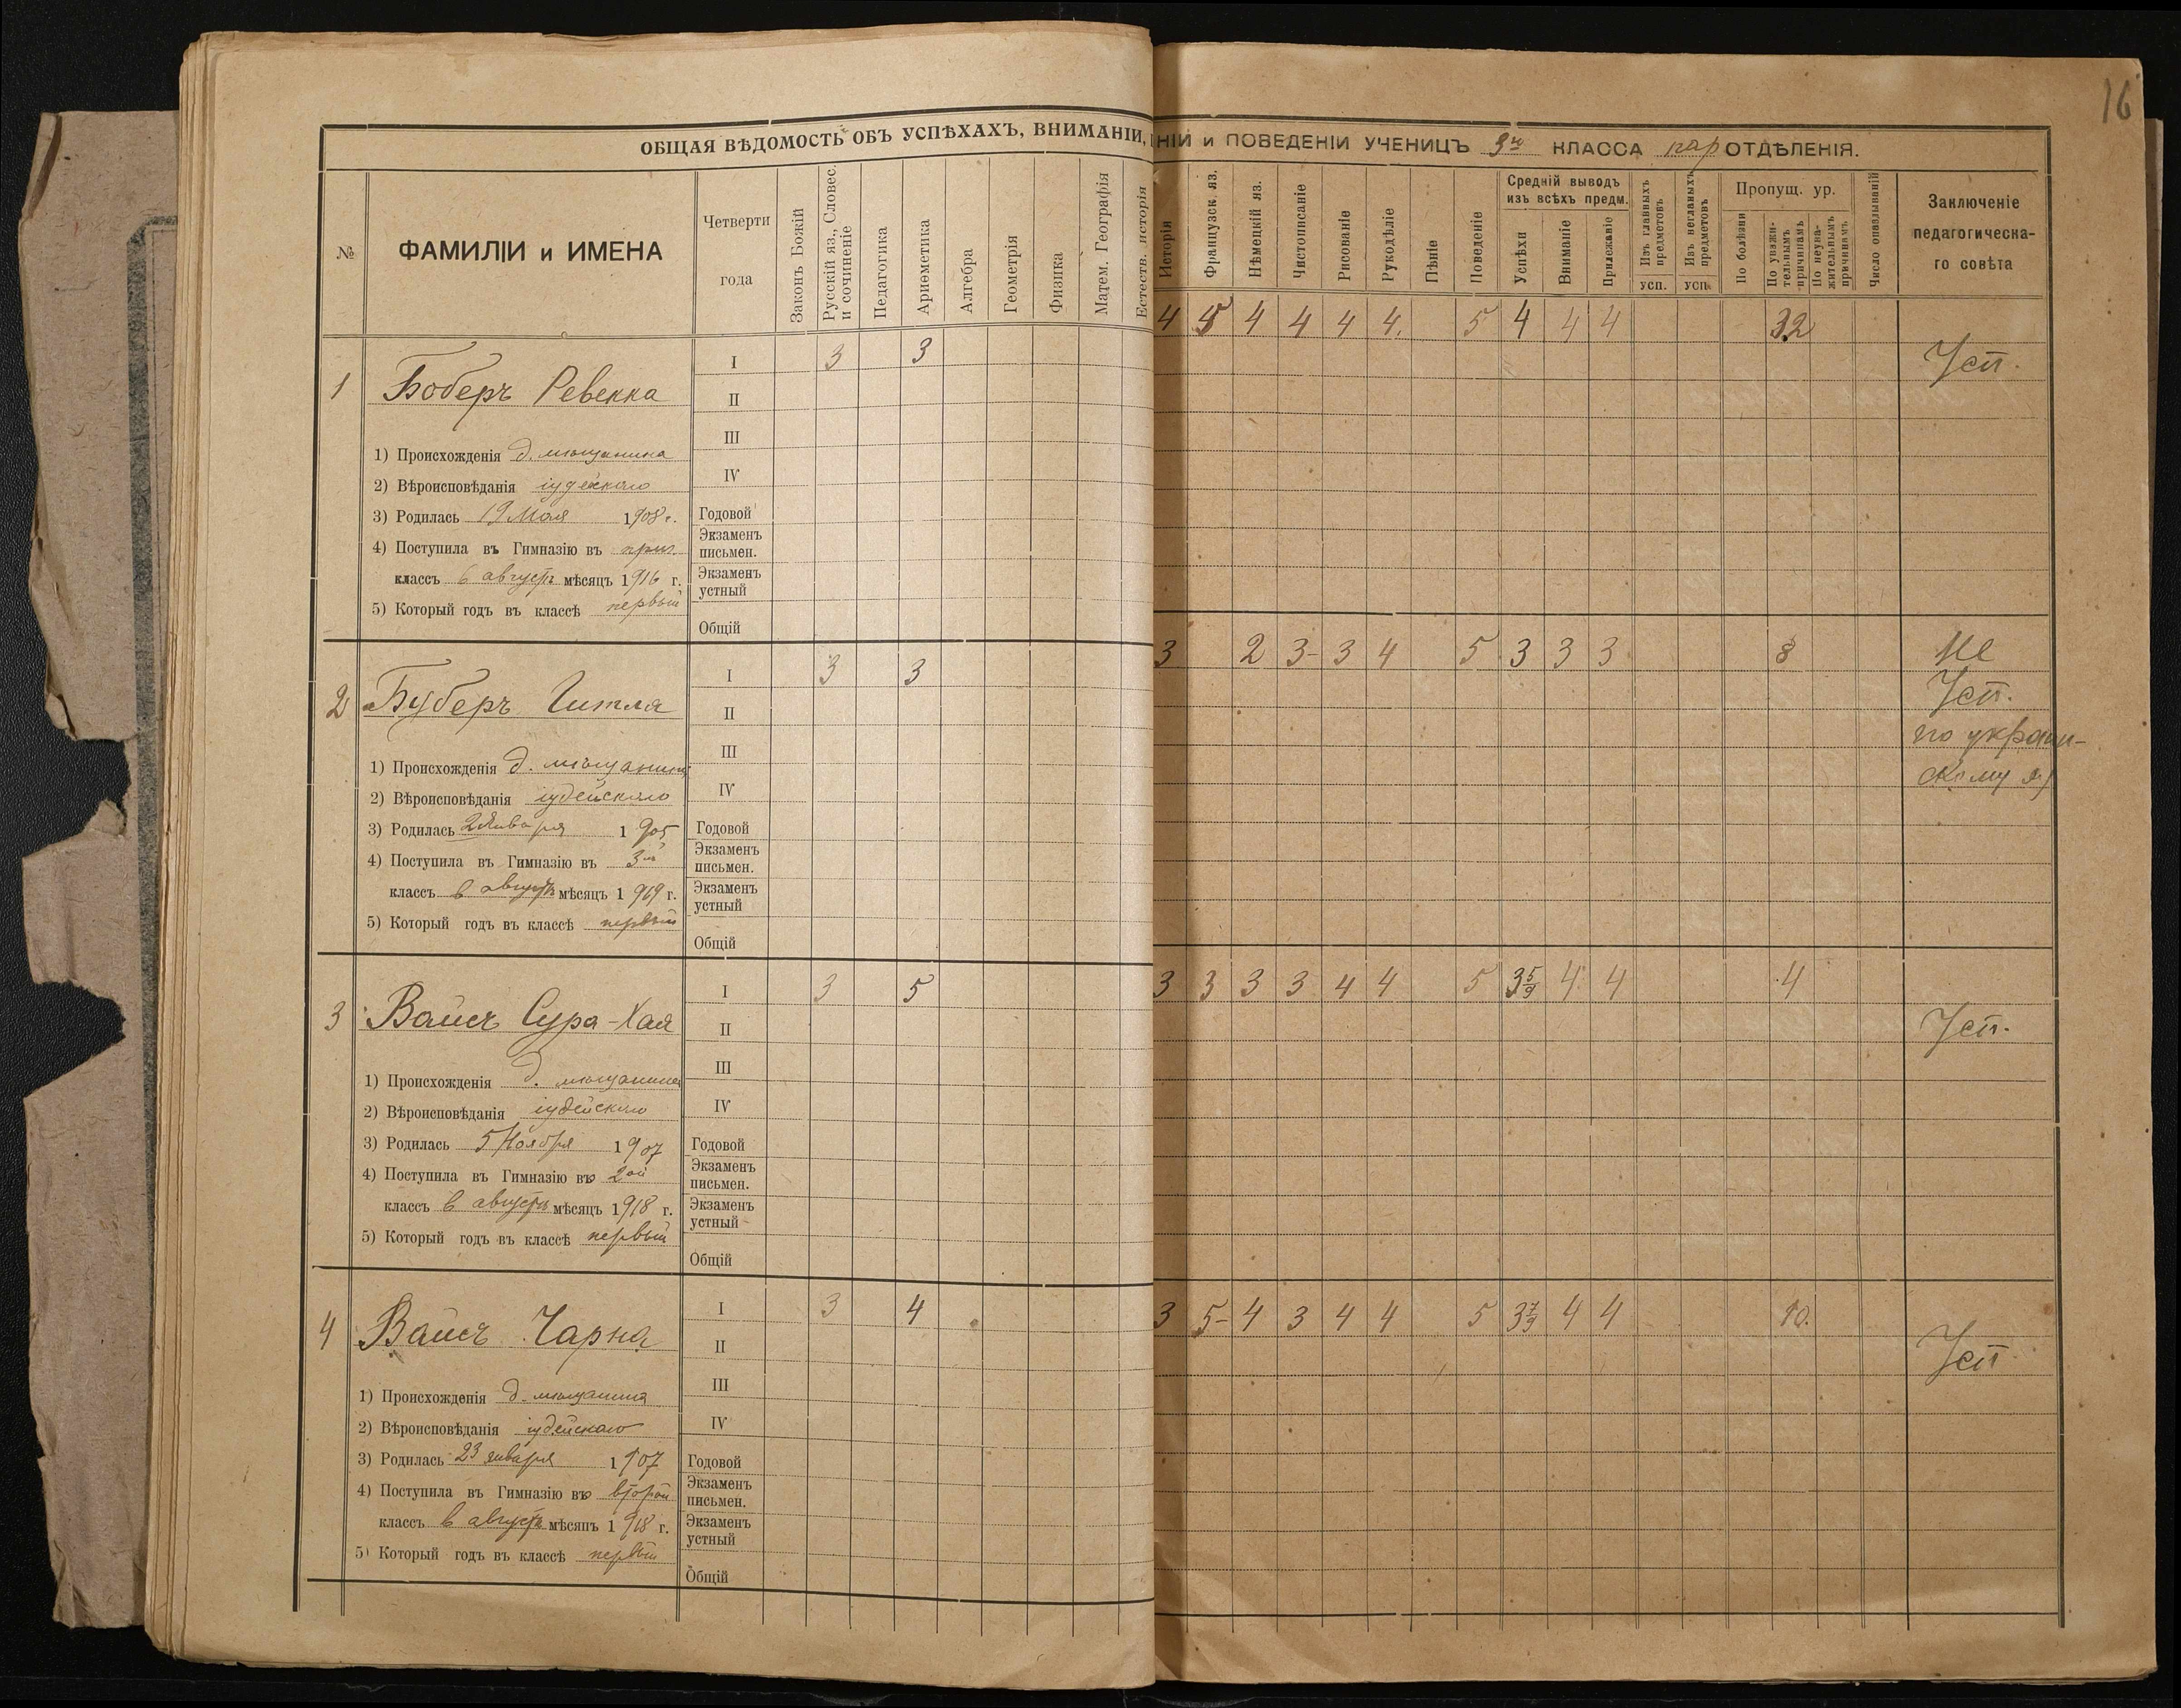 16
ОБЩАЯ ВѢДОМОСТЬ ОБЪ УСПѢХАХЪ, ВНИМАНІИ,
НІИ и ПОВЕДЕНІИ УЧЕНИЦЪ 3го КЛАССА пар ОТДѢЛЕНІЯ.
№
ФАМИЛІИ и ИМЕНА
Четверти
года
Законъ Божій
Русскій яз., Словес.
и сочиненіе
Педагогика
Ариѳметика
Алгебра
Геометрія
Физика
Матем. Географія
Естеств. исторія
Исторія
Французск. яз.
Нѣмецкій яз.
Чистописаніе
Рисованіе
Рукодѣліе
Пѣніе
Поведеніе
Средній выводъ
изъ всѣхъ предм.
Успѣхи
Вниманіе
Прилежаніе
Изъ главныхъ
предметовъ
усп.
Изъ неглавныхъ
предметовъ
усп.
Пропущ. ур.
По болѣзни
По уважи-
тельнымъ
причинамъ
По неува-
жительнымъ
причинамъ
Число опаздываній
Заключеніе
педагогическа-
го совѣта
1
Боберъ Ревекка
1) Происхожденія д. мѣщанина
2) Вѣроисповѣданія іудейскаго
3) Родилась 19 Мая 1908 г.
4) Поступила въ Гимназію въ приг.
классъ в августѣ мѣсяцъ 1916 г.
5) Который годъ въ классѣ первый
I 3 3
II
III
IV
Годовой
Экзаменъ
письмен.
Экзаменъ
устный
Общій
4 5 4 4 4 4. 5 4 4 4 32
Усп.
2
Буберъ Гитля
1) Происхожденія д. мѣщанина
2) Вѣроисповѣданія іудейскаго
3) Родилась 2 Января 1905
4) Поступила въ Гимназію въ 3й
классъ в августѣ мѣсяцъ 1919 г.
5) Который годъ въ классѣ первый
I 3 3
II
III
IV
Годовой
Экзаменъ
письмен.
Экзаменъ
устный
Общій
3 2 3- 3 4 5 3 3 3 8
Не
Усп.
по украин-
скому яз
3
Вайсъ Сура-Хая
1) Происхожденія д. мѣщанина
2) Вѣроисповѣданія іудейскаго
3) Родилась 5 Ноября 1907
4) Поступила въ Гимназію въ 2ой
классъ в августѣ мѣсяцъ 1918 г.
5) Который годъ въ классѣ первый
I 3 5
II
III
IV
Годовой
Экзаменъ
письмен.
Экзаменъ
устный
Общій
3 3 3 3 4 4 5 3 5/9 4 4 4
Усп.
4
Вайсъ Чарна
1) Происхожденія д. мѣщанина
2) Вѣроисповѣданія іудейскаго
3) Родилась 23 января 1907
4) Поступила въ Гимназію въ второй
классъ в августѣ мѣсяцъ 1918 г.
5) Который годъ въ классѣ первый
I 3 4
II
III
IV
Годовой
Экзаменъ
письмен.
Экзаменъ
устный
Общій
3 5- 4 3 4 4 5 3 7/9 4 4 10.
Усп